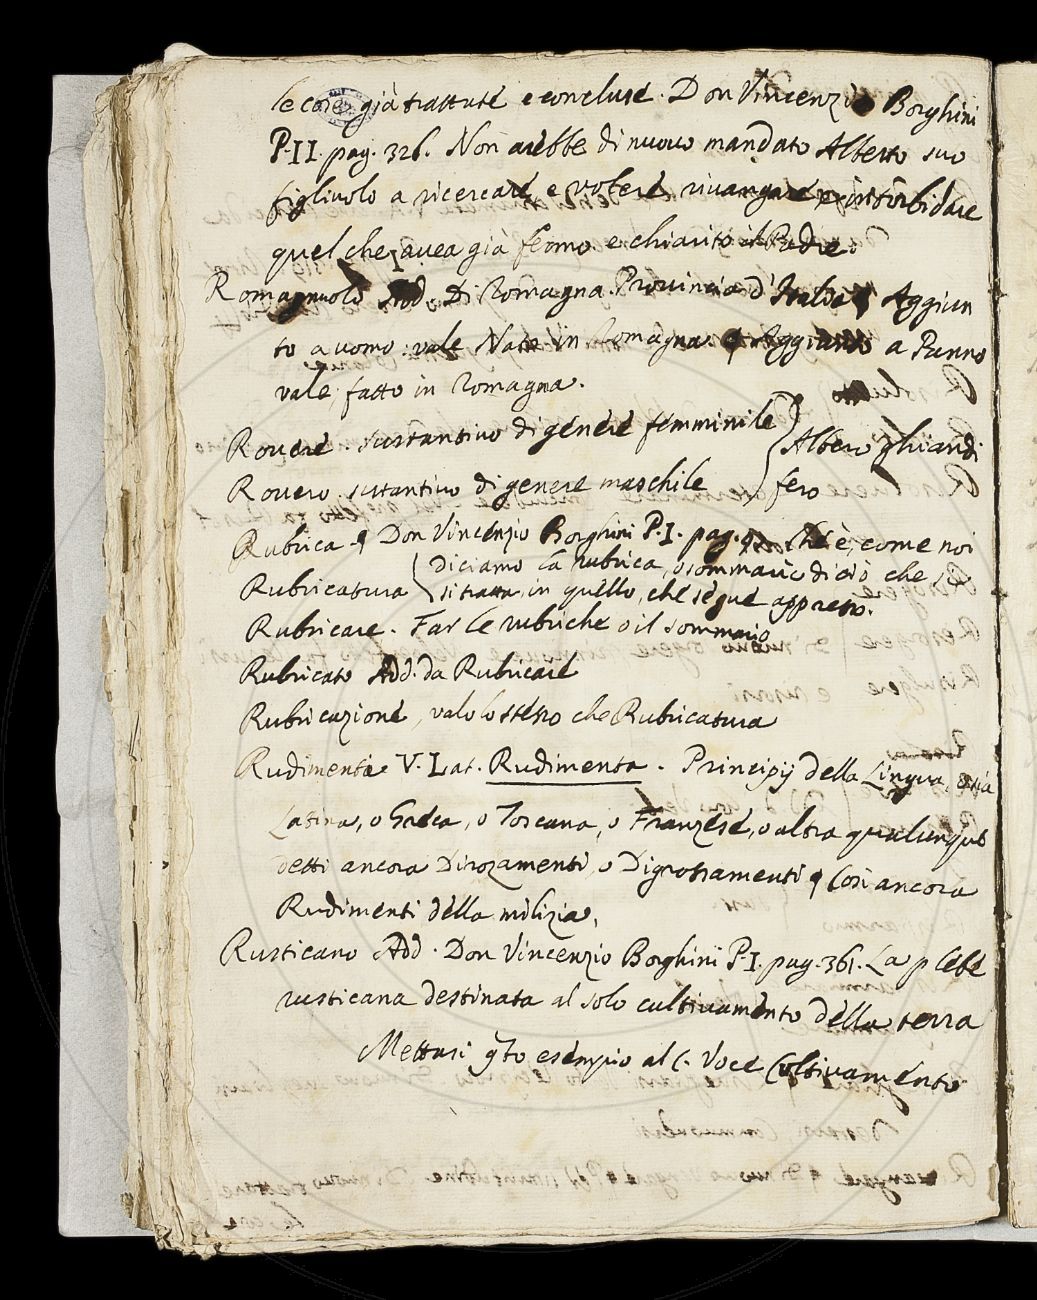 le cose già trattate e concluse. Don Vincenzio Borghini
P. II. pag. 326. Non arebbe di nuovo mandato Alberto suo
figliuolo a ricercare, e volere rivangare, e intorbidare
quel che avea già fermo e chiarito il Padre.
Romagnuolo Add. Di Romagna Provincia d'Italia ¶ Aggiun
to a uomo vale Nato in Romagna. ¶ Aggiunto a Panno
vale, fatto in Romagna.
Rovere. sustantivo di genere femminile
Rovero. sustantivo di genere maschile
Albero ghiandi
fero
Rubrica ¶ Don Vincenzio Borghini P. I. pag. che è, come noi
Rubricatura diciamo la rubrica, o sommario di ciò che
si tratta, in quello, che segue appresso.
Rubricare. Far le rubriche o il sommario
Rubricato Add. da Rubricare
Rubricazione, valo lo stesso che Rubricatura
Rudimenta V. Lat. Rudimenta. Principij della Lingua, o sia
Latina, o Greca, o Toscana, o Franzese, o altra qualunque
detti ancora Dirozamenti, o Digrossamenti ¶ Così ancora
Rudimenti della milizia,
Rusticano Add. Don Vincenzio Borghini P. I. pag. 361. La plebe
rusticana destinata al solo cultivamento della terra
Mettasi qto esempio al C. Voce Coltivamento